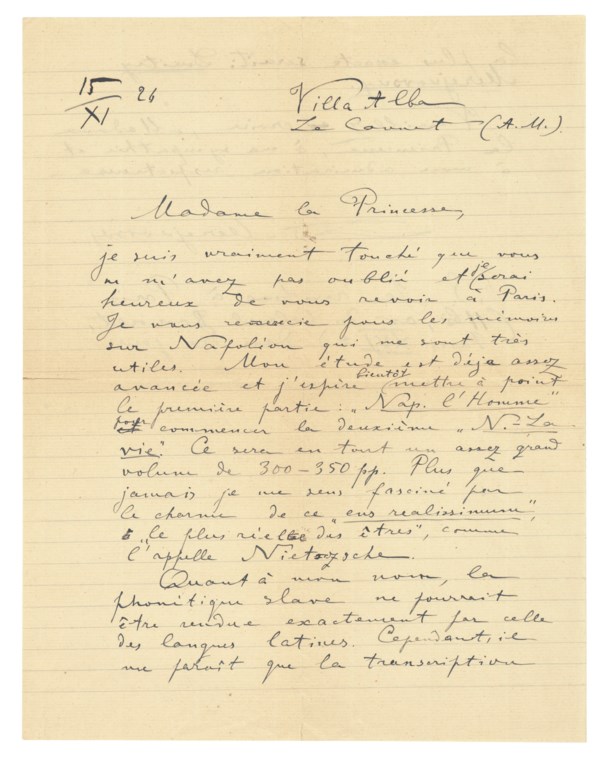 15/XI 26
Villa Alba
Le Cannet (A.M.).
Madame la Princesse,
je suis vraiment touché que vous
ne m'avez pas oublié et je serai
heureux de vous revoir à Paris.
Je vous remercie pour les mémoires
sur Napoléon qui me sont très
utiles. Mon étude est déja assez
avancée et j'espère bientôt mettre à point
le première partie: „Nap. l'Homme"
pour commencer la deuxième „N.-La
vie". Ce sera en tout un assez grand
volume de 300–350 pp. Plus que
jamais je me sens fasciné par
le charme de ce „ens realissimum",
„le plus réel des êtres", comme
l'appelle Nietzsche.
Quant à mon nom, la
phonétique slave ne pourrait
être rendue exactement par celle
des langues latines. Cependant, il
me paraît que la transcription